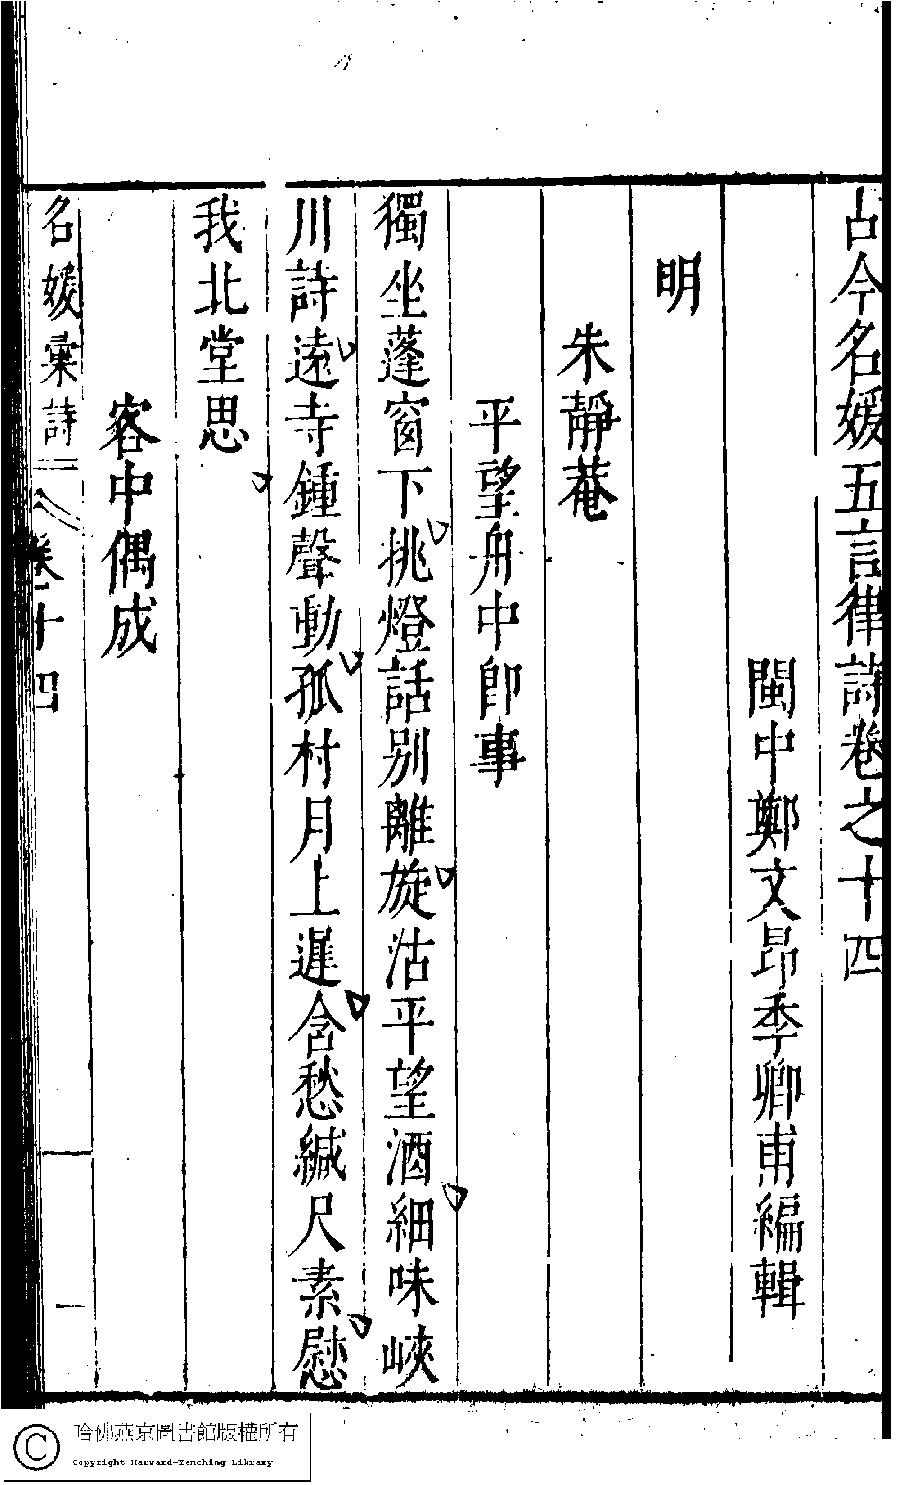 古今名媛五言律詩卷之十四
閩中鄭文昂季卿甫編輯
明
朱靜菴
平望舟中即事
獨坐蓬窗下挑燈話别離旋沽平望酒細味峽
川詩遠寺鍾聲動孤村月上遲含愁緘尺素慰
我北堂思
客中偶成
名媛彙詩 卷十四 一
哈佛燕京圖書館版權所有
Copyright Harvard-Yenching Library